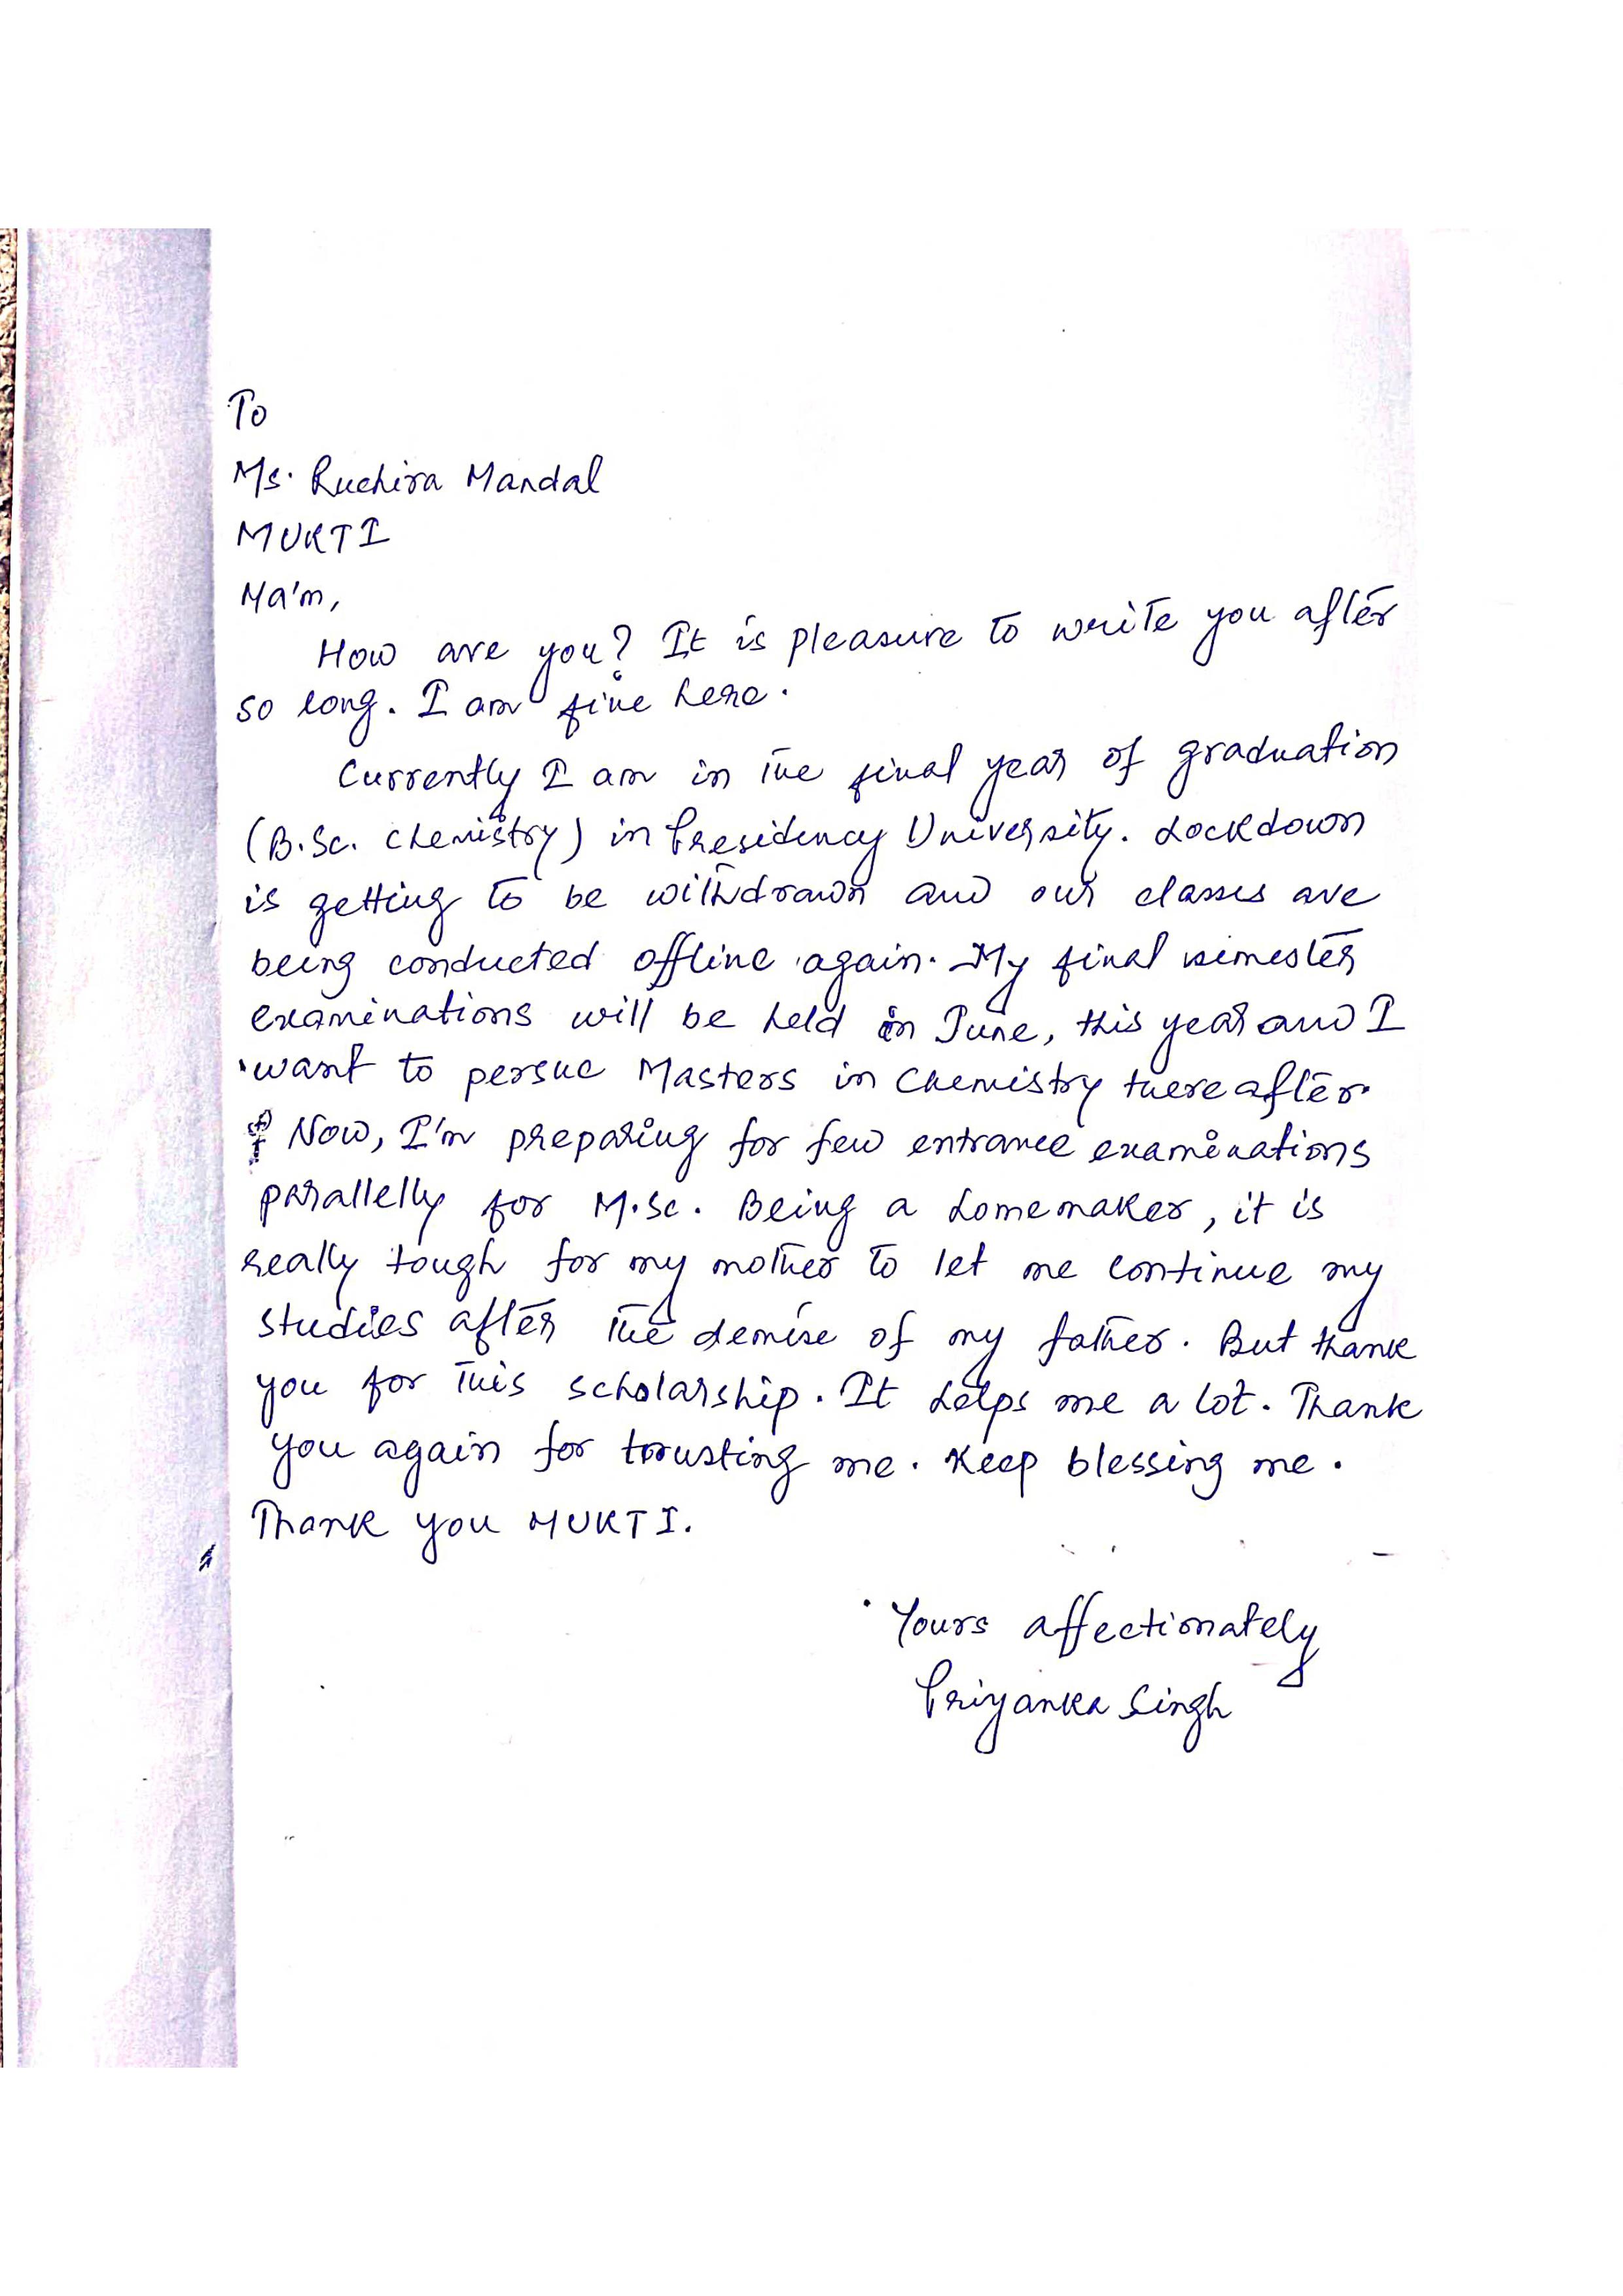 To
Ms. Ruchira Mandal
MUKTI
Ma'm,
How are you? It is pleasure to write you after
so long. I am fine here.
Currently I am in the final year of graduation
(B.Sc. Chemistry) in Presidency University. Lockdown
is getting to be withdrawn and our classes are
being conducted offline again. My final semester
examinations will be held in June, this year and I
want to persue Masters in Chemistry thereafter.
Now, I'm preparing for few entrance examinations
parallelly for M.Sc. Being a homemaker, it is
really tough for my mother to let me continue my
studies after the demise of my father. But thank
you for this scholarship. It helps me a lot. Thank
you again for trusting me. Keep blessing me.
Thank you MUKTI.
Yours affectionately
Priyanka Singh